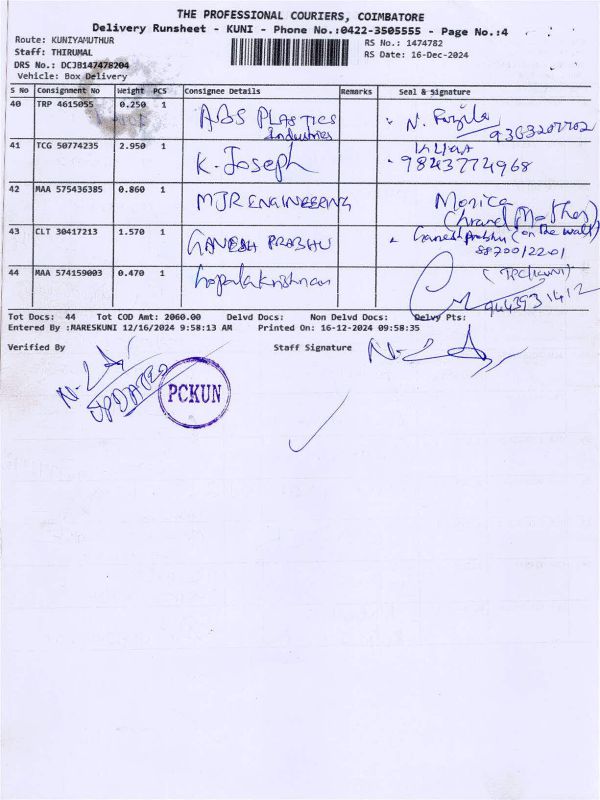 THE PROFESSIONAL COURIERS, COIMBATORE
Delivery Runsheet - KUNI - Phone No.:0422-3505555 - Page No.:4
Route: KUNIYAMUTHUR
RS No.: 1474782
Staff: THIRUMAL
RS Date: 16-Dec-2024
DRS No.: DCJB147478204
Vehicle: Box Delivery
S No Consignment No Weight PCS Consignee Details Remarks Seal & Signature
40 TRP 4615055 0.250 1 ABS PLASTICS Industries N. Fazila
9363207702
41 TCG 50774235 2.950 1 K. Joseph
9843774968
42 MAA 575436385 0.860 1 MJR ENGINEERING Monica
(Mother)
43 CLT 30417213 1.570 1 GANESH PRABHU Ganesh Prabhu (on the wall)
8870012201
44 MAA 574159003 0.470 1 Gopalakrishnan
9443931412
Tot Docs: 44 Tot COD Amt: 2060.00 Delvd Docs: Non Delvd Docs: Delvy Pts:
Entered By :MARESKUNI 12/16/2024 9:58:13 AM Printed On: 16-12-2024 09:58:35
Verified By Staff Signature
UPDATED
PCKUN